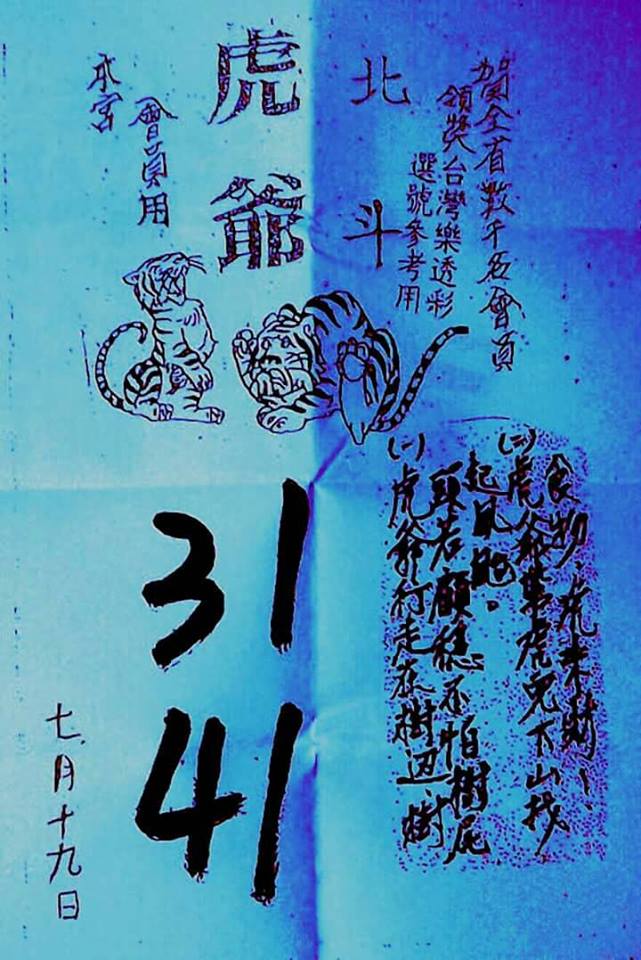 賀全省數千名會員
領獎台灣樂透彩
選號參考用
北斗
虎爺
會員用
本宮
(一)虎爺行走在樹邊,樹
頭若顧穩不怕樹尾
起風颱。
(二)虎爺帶虎兒下山找
食物,虎來財~~
31
41
七月十九日